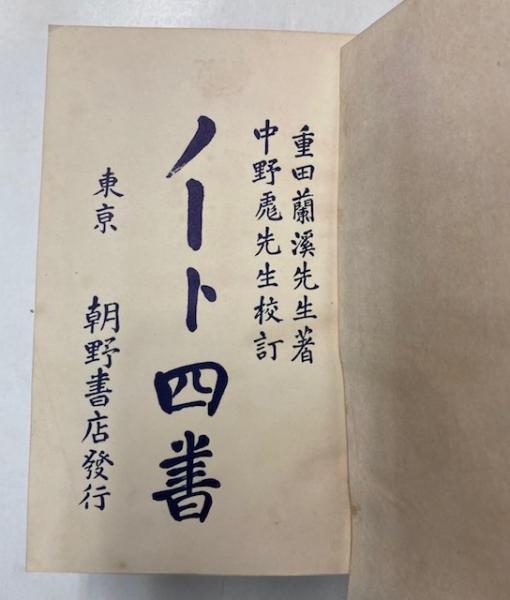 重田蘭溪先生著
中野彪先生校訂
ノート四書
東京 朝野書店發行